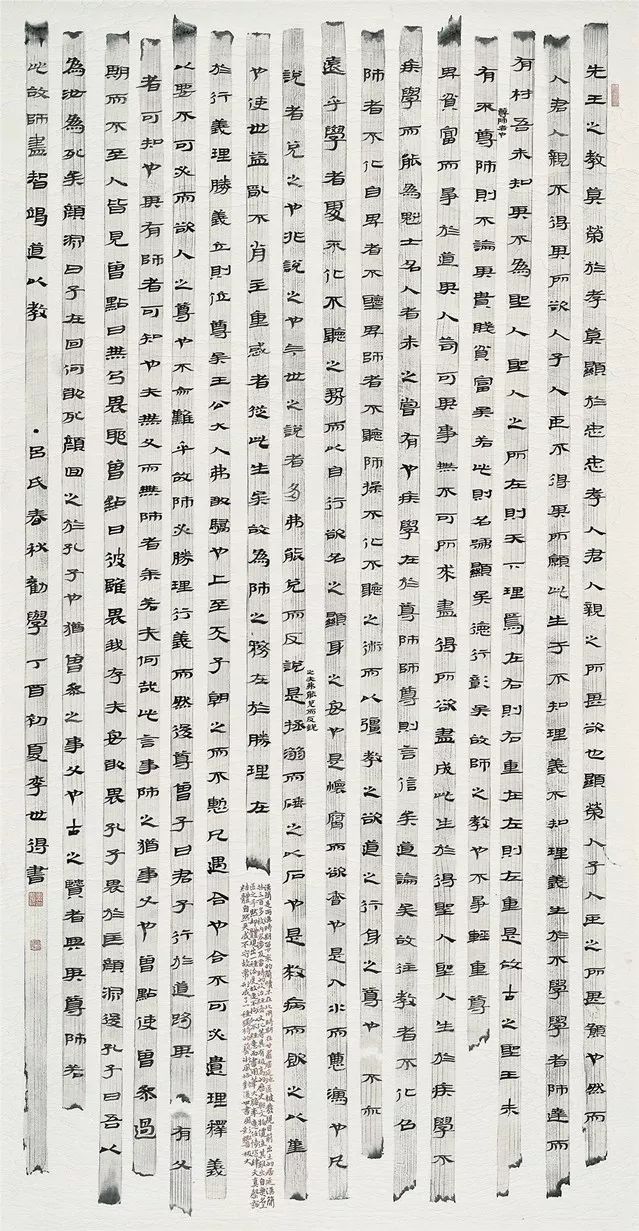 先王之教莫榮於孝莫顯於忠忠孝人君人親之所甚欲也顯榮人子人臣之所甚願也然而
人君人親不得其所欲人子人臣不得其所願此生于不知理義不知理義生於不學學者師達而
有材吾未知其不為聖人聖人之所在則天下理焉在右則右重在左則左重是故古之聖王未
有不尊師則不論其貴賤貧富矣若此則名號顯矣德行彰矣故師之教也不爭輕重尊
尊師者也
卑貧富而爭於道其人苟可其事無不可所求盡得所欲盡成此生於得聖人聖人生於疾學不
疾學而能為魁士名人者未之嘗有也疾學在於尊師師尊則言信矣道論矣故往教者不化召
師者不化自卑者不聽卑師者不聽師操不化不聽之術而以彊教之欲道之行身之尊也不亦
遠乎學者處不化不聽之勢而以自行欲名之顯身之安也是懷腐而欲香也是入水而惡濡也凡
說者兌之也非說之也今世之說者多弗能兌而反說是拯溺而硾之以石也是救病而飲之以堇
之夫弗能兌而反說
也使世益亂不肖主重惑者從此生矣故為師之務在於勝理在
於行義理勝義立則位尊矣王公大人弗敢驕也上至天子朝之而不慙凡遇合也合不可必遺理釋義
以要不可必而欲人之尊也不亦難乎故師必勝理行義而然後尊曾子曰君子行於道路其有父
者可知也其有師者可知也夫無父而無師者余若夫何哉此言事師之猶事父也曾點使曾參過
期而不至人皆見曾點曰無乃畏耶曾點曰彼雖畏我存夫安敢畏孔子畏於匡顏淵後孔子曰吾以
為汝為死矣顏淵曰子在回何敢死顏回之於孔子也猶曾參之事父也古之賢者與其尊師若
此故師盡智竭道以教 ·呂氏春秋勸學丁酉初夏李世得書